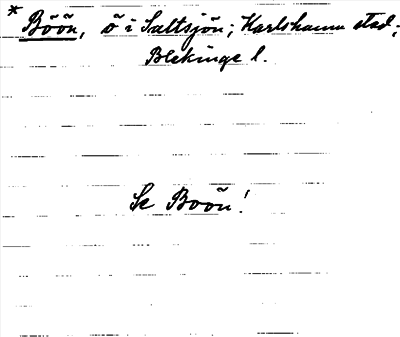 * Böön, ö i Saltsjön; Karlshamn stad;
Blekinge l.
Se Boön!